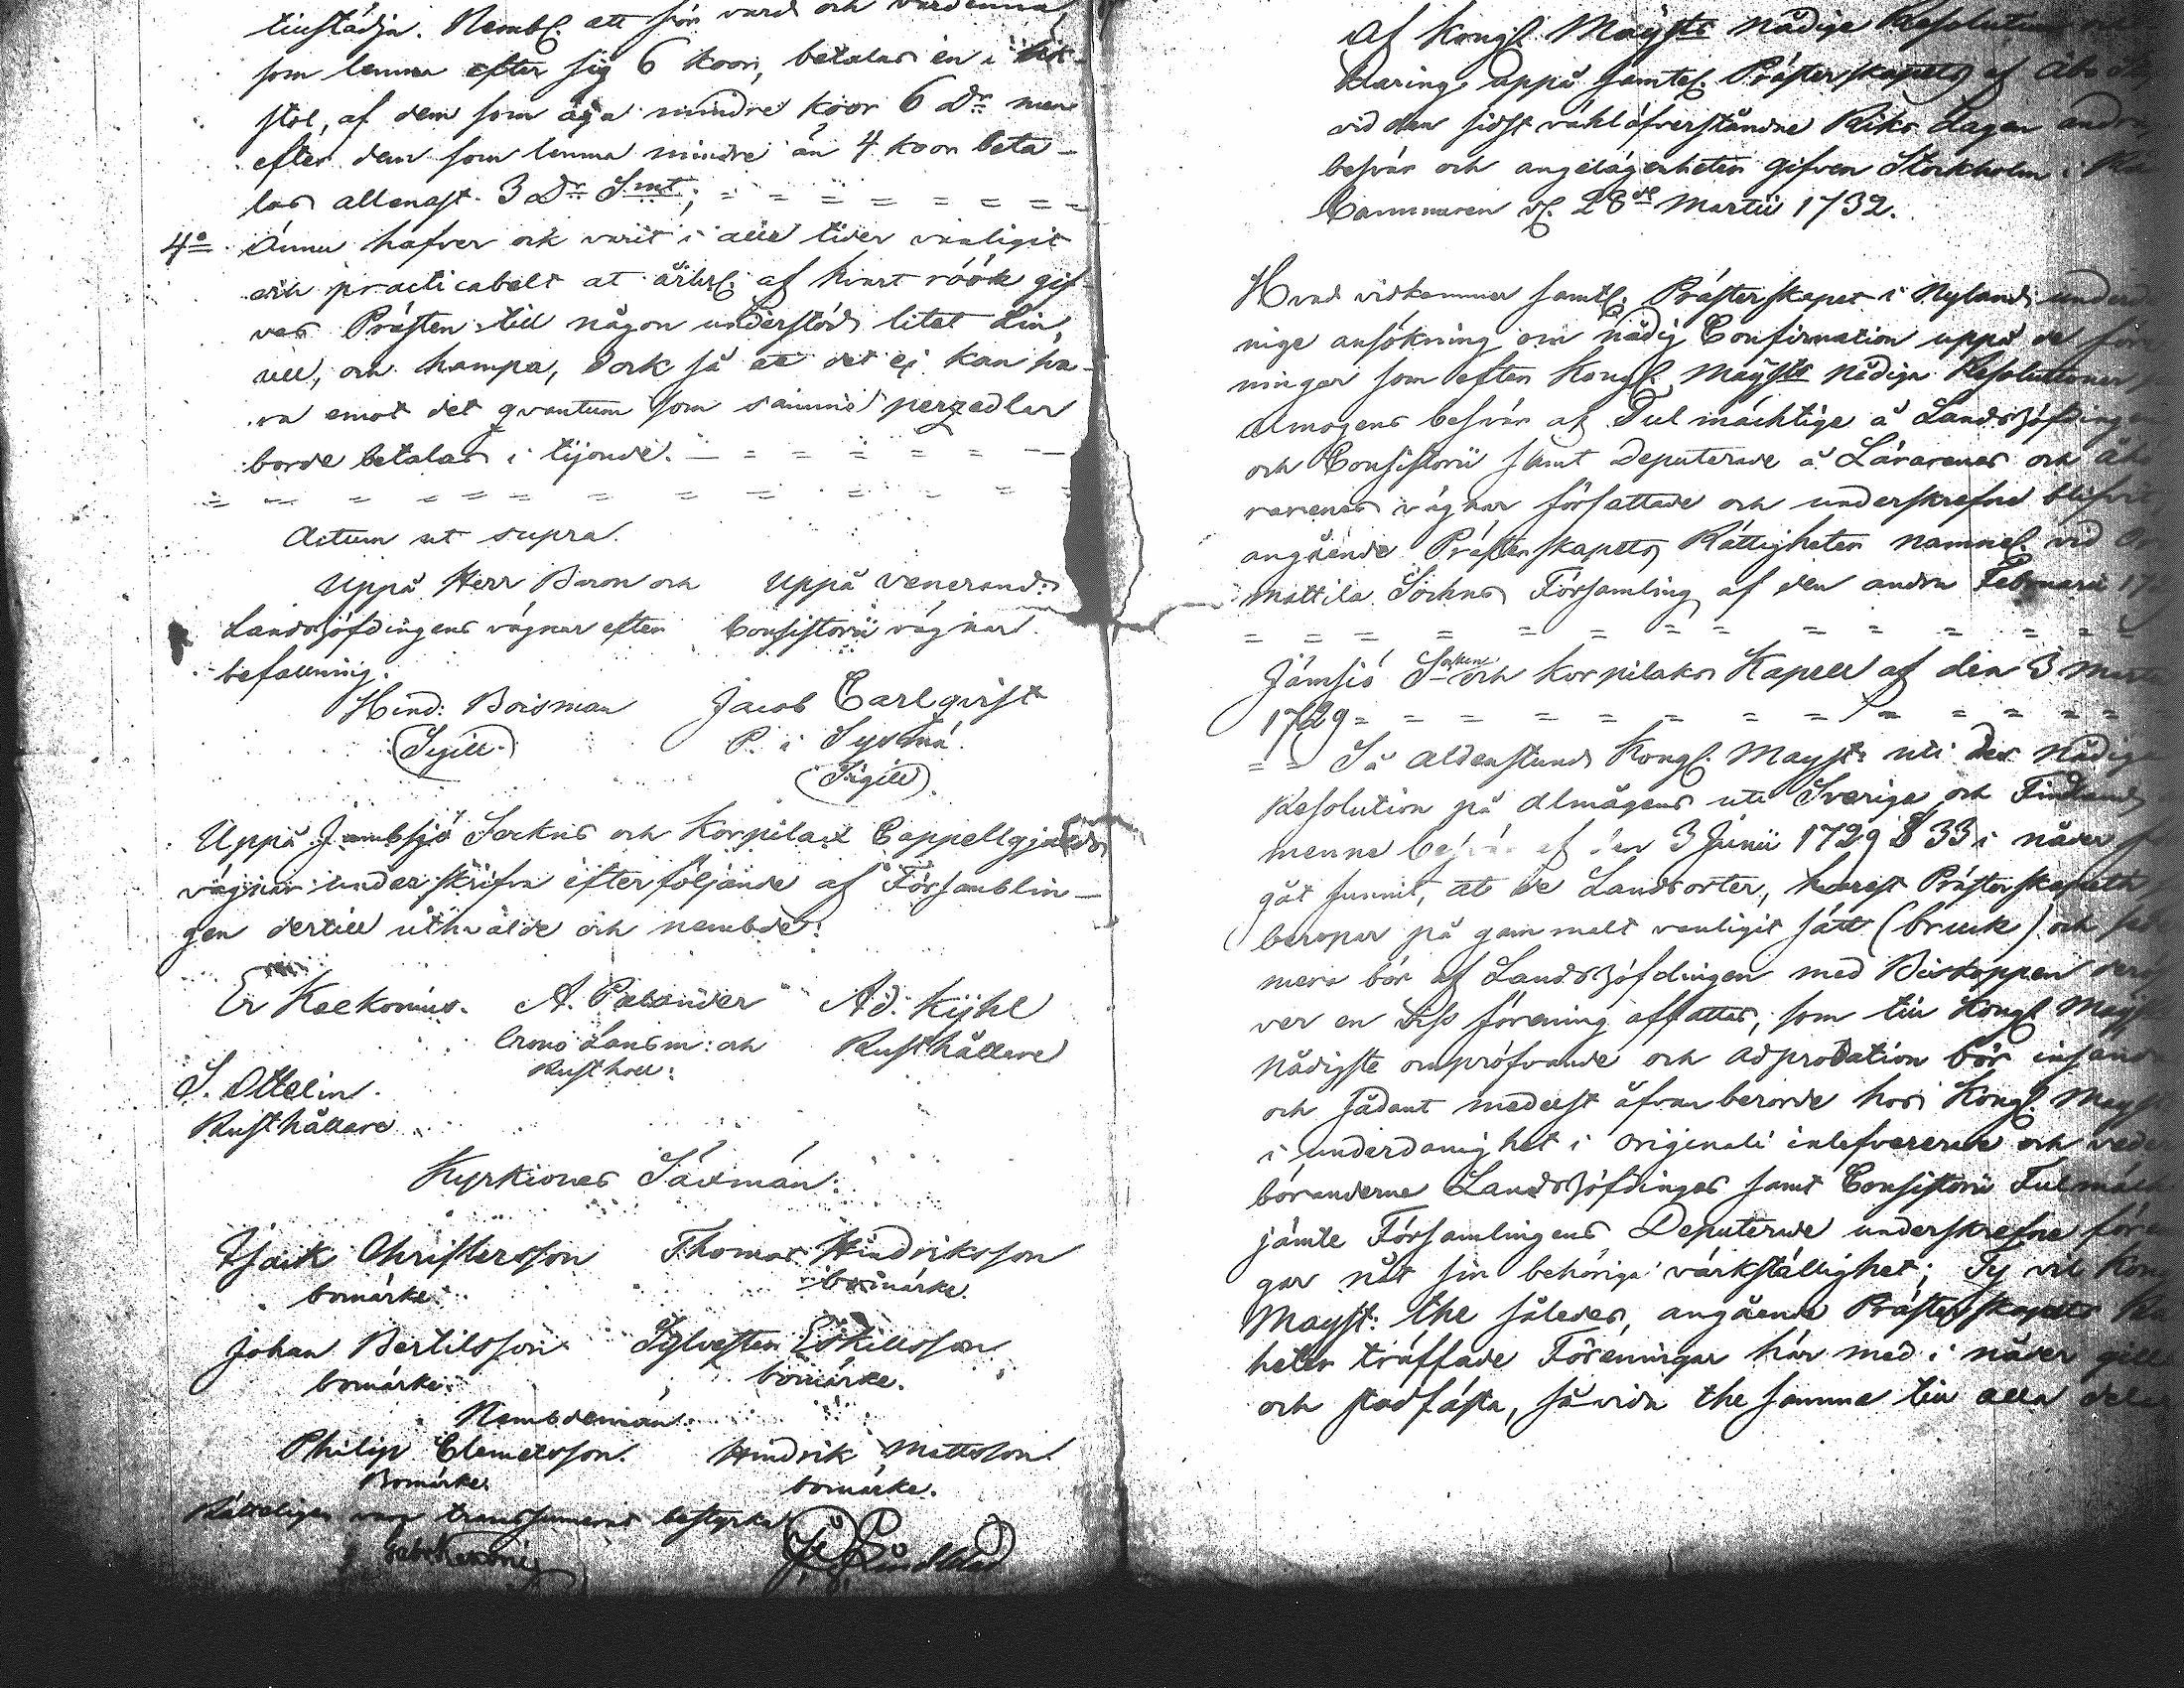 tillstädja. Nembl. att för vard och vardenna
som lemna efter sig 6 koor, betalas en i lik-
stol, af dem som äga mindre koor 6 Dr men
efter dem som lemna mindre än 4 koor beta-
las allenast 3 Dr Smt; = = = = = = = =
4o Ännu hafver ock varit i alle tider vanligit
och practicabelt at årl. af hvart röök gif-
vas Prästen till någon understöd litet Lin,
ull, och hampa, dock så at det ej kan sva-
ra emot det qvantum som sammed perzedlar
borde betalas i tijonde. = = = = = =
= = = = = = = = = = = =
Actum ut supra.
Uppå Herr Baron och Uppå Venerand:
Landshöfdingens vägnar efter Consistorii vägnar.
befallning.
Hind: Boisman Jacob Carlqvist
(Sigill.) P. i Sysmä.
(Sigill).
Uppå Jembsjö Sockns och Korpilax Cappellgjälds
vägnar underskrifva efterföljande af Församblin-
gen dertill uthvalde och nembde:
Er Kaekonius. A. Palander Ad. Kijhl
Crono Länsm: och Rusthållare
Rusthåll:
S. Ottelin.
Rusthållare
Kyrkiones Säxmän:
Isaik Christersson Thomas Hindriksson
bomärke. bomärke.
Johan Bertilsson Sylvester Eskillsson
bomärke. bomärke.
Nembdemän:
Philip Clemetsson. Hindrik Mattsson
Bomärke. bomärke.
Rätteligen vara transsumerat bestyrka
Af Kongl. Maysts nådige Resolution och
klaring uppå samtel. Prästerskapets af Åbo
vid den sidst vähl öfverståndne Riks Dagen andra
besvär och angelägenheter gifven Stockholm i
Cammaren d. 28de Martii 1732.
Hvad vidkommer samtl. Prästerskapet i Nyland underdå
nige ansökning om nådig Confirmation uppå de före
ningar som efter Kongl. Maysts nådiga Resolutioner
almogens besvär af Fulmächtige å Landshöfdingen
och Consistorii samt Deputerade å Lärarenes och åhö
rarenes vägnar författade och underskrefne blifvit,
angående Prästerskapets Rättigheter namnel. vid Or
mattila Sochns Församling af den andra Februarii 17
= = = = = = = = = = = = =
Jämsiö Socken och Korpilaks Kapell af den 3 Martii
1729 = = = = = = = = = = =
= = Så aldenstund Kongl. Mayst: uti des Nådige
Resolution på Almågens uti Sverige och Finland
menne besvär af den 3 Junii 1729 § 33 i nåder
gåt funnit, at de Landsorter, hvarest Prästerskapeth
beropar på gammalt vanligit sätt (bruuk) och
mera bör af Landshöfdingen med Biskoppen derö
ver en viss förening affattas, som till Kongl. Mayst
Nådigste ompröfvande och Adprobation bör insänd
och sådant medelst åfvan berörde hos Kongl. Mayst
i underdånighet i originali inlefvererade och veder
böranderne Landshöfdinges samt Consistorii Fulmäch
jämte Församlingens Deputerade underskrefne före
gar nåt sin behöriga värkställighet; Ty vil Kong
Mayst: the således, angående Prästerskapets
heter träffade Föreningar här med i nåder gilla
och stadfästa, så vida the samma till alla delar